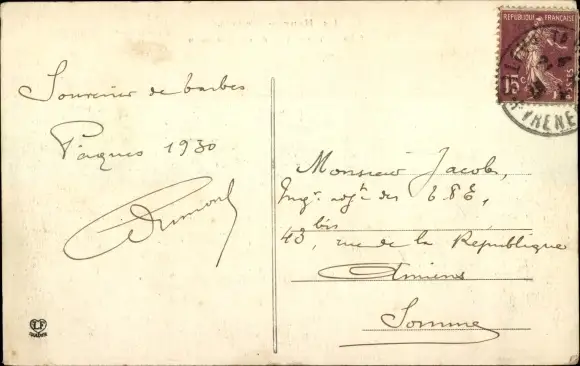 Souvenir de Tarbes
Pâques 1930
Dumont
REPUBLIQUE FRANÇAISE
15c
POSTES
PYRENE
Monsieur Jacob,
Ingr. adjt. des
43 bis, rue de la République
Amiens
Somme